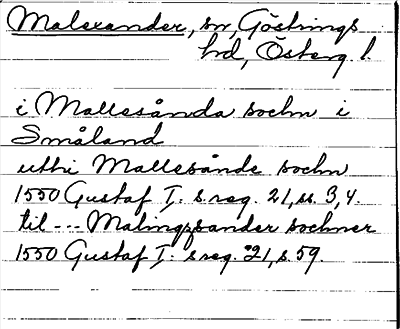 Malexander, sn, Göstrings
hd, Österg. l.
i Mallesånda sochn i
Småland
uthi Mallesånde sochn
1550 Gustaf I. s reg. 21, ss. 3, 4.
til --- Malingzsander sochner
1550 Gustaf I. s reg. 21, s. 59.